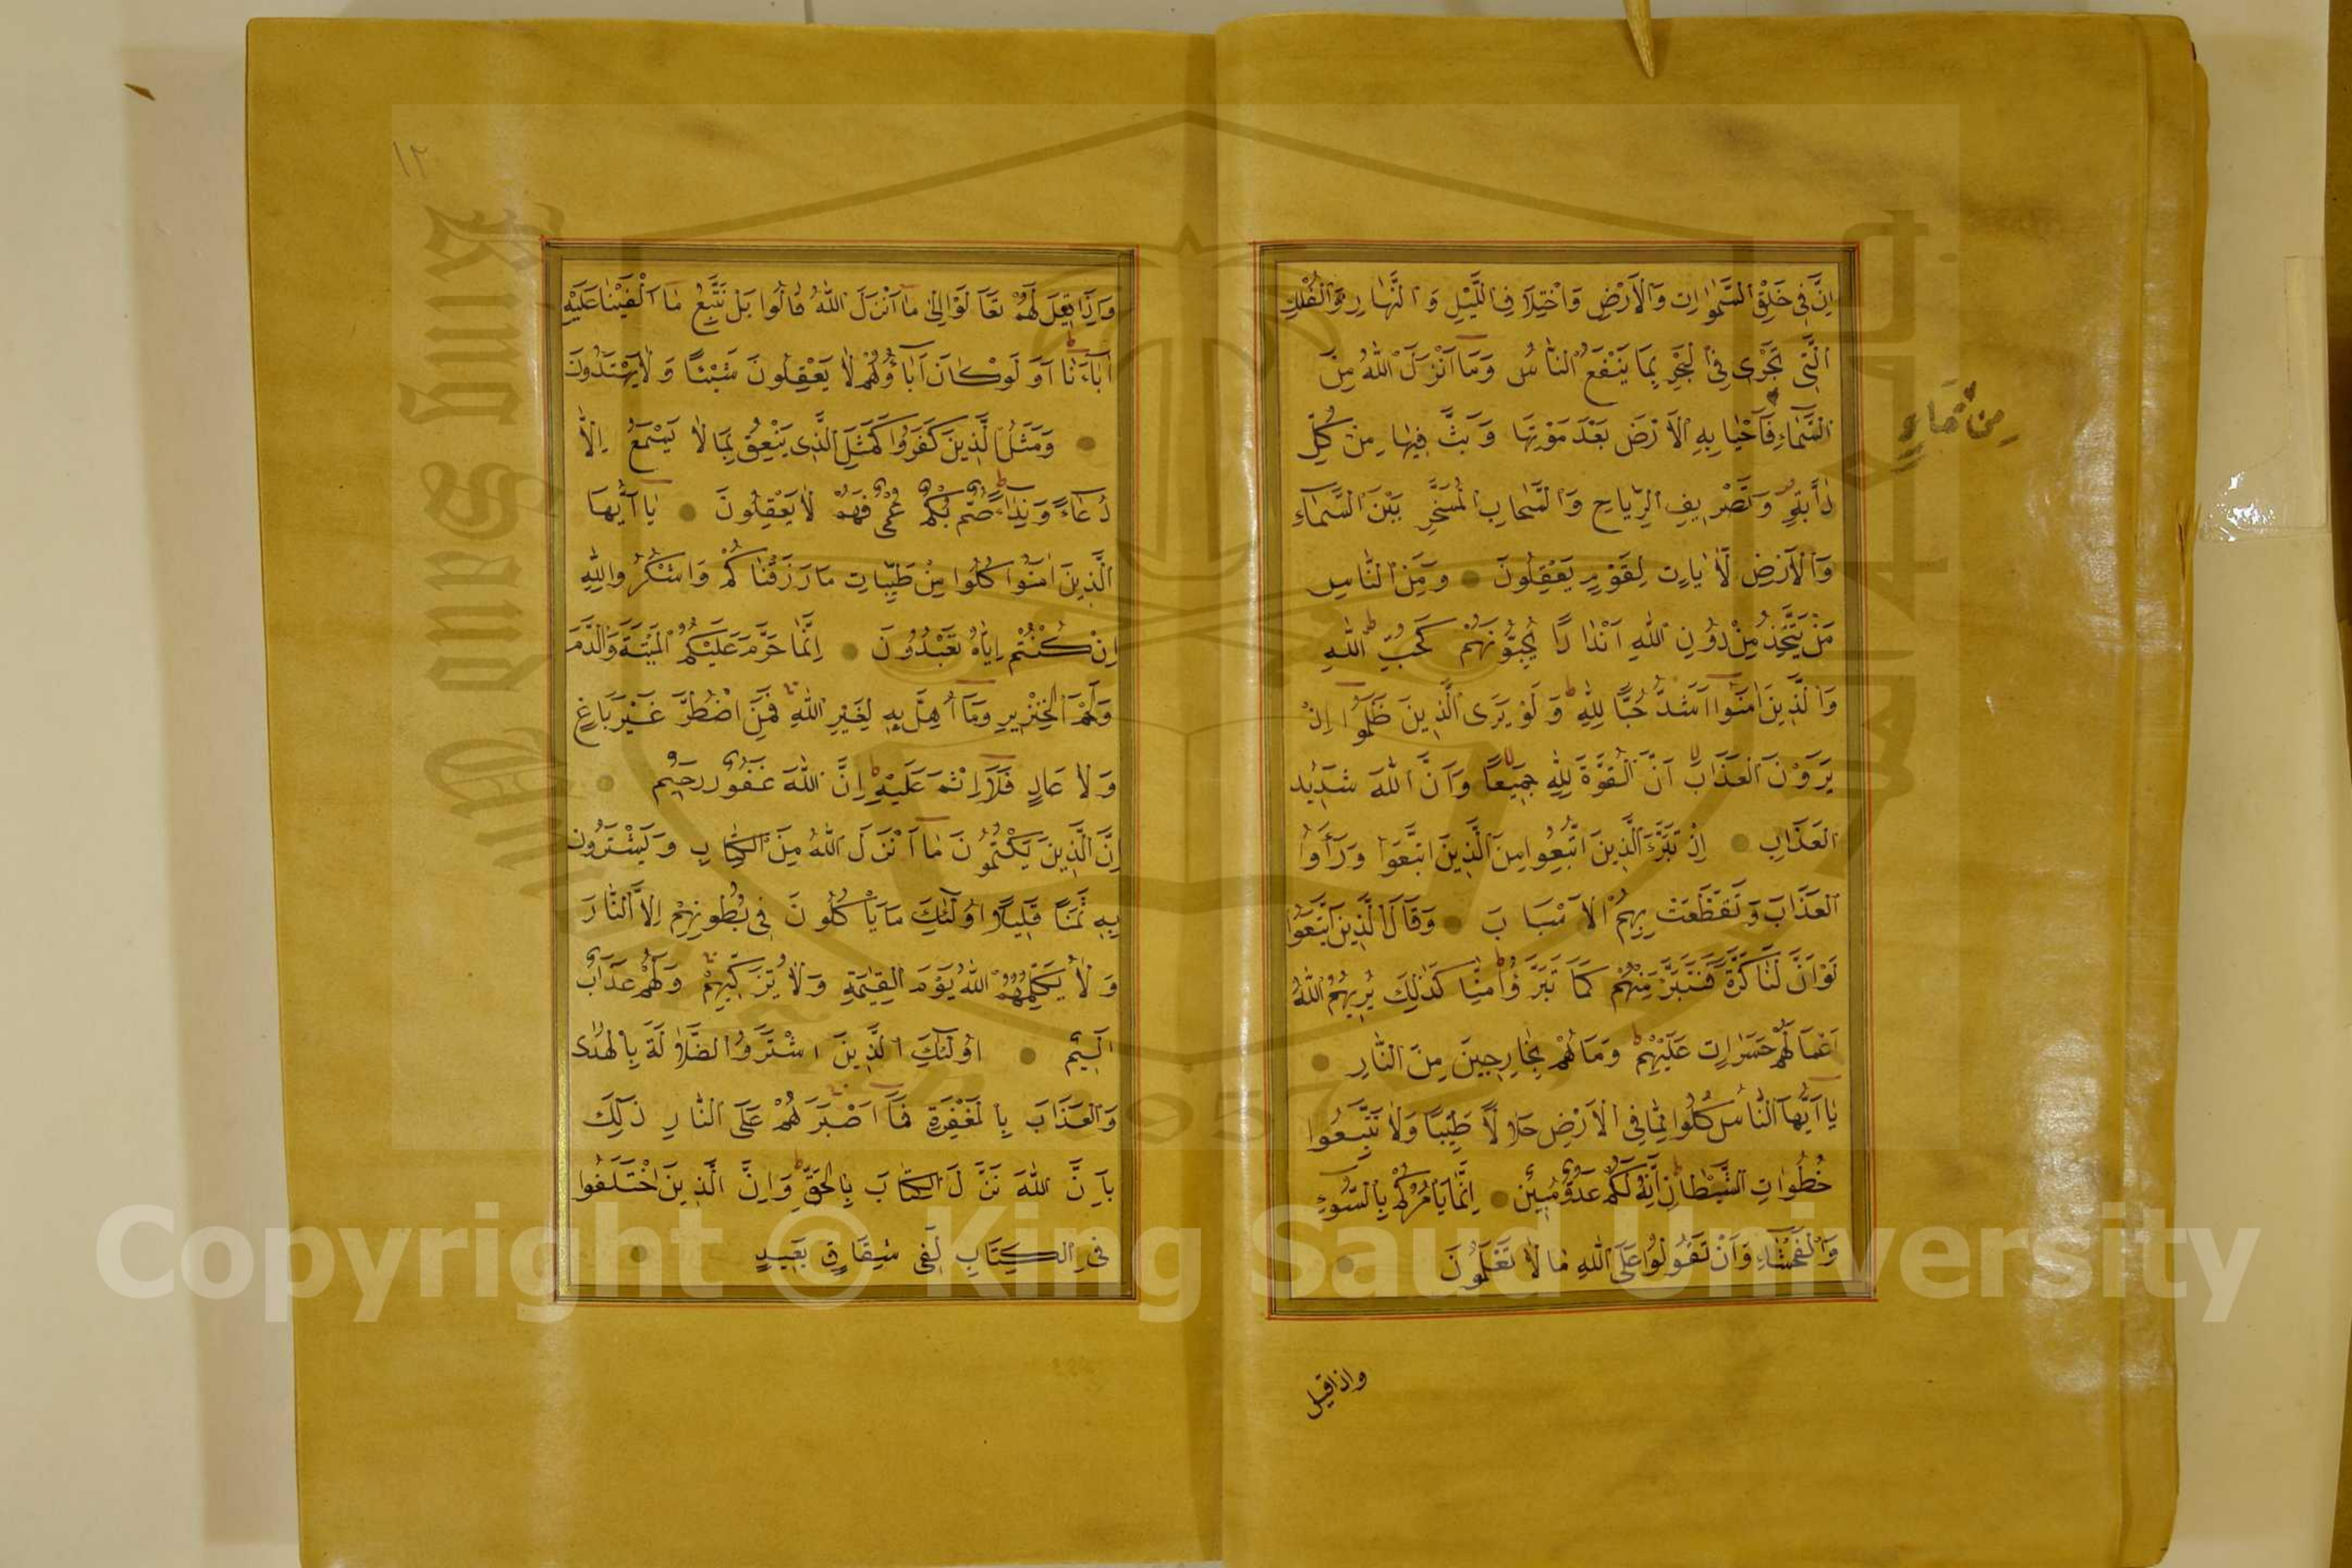 اِنَّ فِي خَلْقِ السَّمٰوَاتِ وَالْاَرْضِ وَاخْتِلَافِ اللَّيْلِ وَالنَّهَارِ وَالْفُلْكِ
الَّتِي تَجْرِى فِي الْبَحْرِ بِمَا يَنْفَعُ النَّاسَ وَمَا اَنْزَلَ اللّٰهُ مِنَ
السَّمَاءِ فَاَحْيَا بِهِ الْاَرْضَ بَعْدَ مَوْتِهَا وَ بَثَّ فِيهَا مِنْ كُلِّ
دَابَّةٍ وَتَصْرِيفِ الرِّيَاحِ وَالسَّحَابِ الْمُسَخَّرِ بَيْنَ السَّمَاءِ
وَالْاَرْضِ لَاٰيَاتٍ لِقَوْمٍ يَعْقِلُونَ وَمِنَ النَّاسِ
مَنْ يَتَّخِذُ مِنْ دُونِ اللّٰهِ اَنْدَادًا يُحِبُّونَهُمْ كَحُبِّ اللّٰهِ
وَالَّذِينَ اٰمَنُوا اَشَدُّ حُبًّا لِلّٰهِ وَلَوْ يَرَى الَّذِينَ ظَلَمُوا اِذْ
يَرَوْنَ الْعَذَابَ اَنَّ الْقُوَّةَ لِلّٰهِ جَمِيعًا وَاَنَّ اللّٰهَ شَدِيدُ
الْعَذَابِ اِذْ تَبَرَّءَ الَّذِينَ اتُّبِعُوا مِنَ الَّذِينَ اتَّبَعُوا وَرَاَوُا
الْعَذَابَ وَتَقَطَّعَتْ بِهِمُ الْاَسْبَابَ وَقَالَ الَّذِينَ اتَّبَعُوا
لَوْ اَنَّ لَنَا كَرَّةً فَنَتَبَرَّ مِنْهُمْ كَمَا تَبَرَّؤُا مِنَّا كَذٰلِكَ يُرِيهِمُ اللّٰهُ
اَعْمَالَهُمْ حَسَرَاتٍ عَلَيْهِمْ وَمَا هُمْ بِخَارِجِينَ مِنَ النَّارِ
يَا اَيُّهَا النَّاسُ كُلُوا مِمَّا فِي الْاَرْضِ حَلَالًا طَيِّبًا وَلَا تَتَّبِعُوا
خُطُوَاتِ الشَّيْطَانِ اِنَّهُ لَكُمْ عَدُوٌّ مُبِينٌ اِنَّمَا يَاْمُرُكُمْ بِالسُّوءِ
وَالْفَحْشَاءِ وَاَنْ تَقُولُوا عَلَى اللّٰهِ مَا لَا تَعْلَمُونَ
مِنْ مَاءٍ
واذاقيل
١٢
وَاِذَا قِيلَ لَهُمْ تَعَالَوْا اِلٰى مَا اَنْزَلَ اللّٰهُ قَالُوا بَلْ نَتَّبِعُ مَا اَلْفَيْنَا عَلَيْهِ
اٰبَاءَنَا اَوَلَوْ كَانَ اٰبَاؤُهُمْ لَا يَعْقِلُونَ شَيْئًا وَلَا يَهْتَدُونَ
وَمَثَلُ الَّذِينَ كَفَرُوا كَمَثَلِ الَّذِى يَنْعِقُ بِمَا لَا يَسْمَعُ اِلَّا
دُعَاءً وَنِدَاءً صُمٌّ بُكْمٌ عُمْىٌ فَهُمْ لَا يَعْقِلُونَ يَا اَيُّهَا
الَّذِينَ اٰمَنُوا كُلُوا مِنْ طَيِّبَاتِ مَا رَزَقْنَاكُمْ وَاشْكُرُوا لِلّٰهِ
اِنْ كُنْتُمْ اِيَّاهُ تَعْبُدُونَ اِنَّمَا حَرَّمَ عَلَيْكُمُ الْمَيْتَةَ وَالدَّمَ
وَلَحْمَ الْخِنْزِيرِ وَمَا اُهِلَّ بِهِ لِغَيْرِ اللّٰهِ فَمَنِ اضْطُرَّ غَيْرَ بَاغٍ
وَلَا عَادٍ فَلَا اِثْمَ عَلَيْهِ اِنَّ اللّٰهَ غَفُورٌ رَحِيمٌ
اِنَّ الَّذِينَ يَكْتُمُونَ مَا اَنْزَلَ اللّٰهُ مِنَ الْكِتَابِ وَيَشْتَرُونَ
بِهِ ثَمَنًا قَلِيلًا اُولٰئِكَ مَا يَاْكُلُونَ فِى بُطُونِهِمْ اِلَّا النَّارَ
وَلَا يُكَلِّمُهُمُ اللّٰهُ يَوْمَ الْقِيٰمَةِ وَلَا يُزَكِّيهِمْ وَلَهُمْ عَذَابٌ
اَلِيمٌ اُولٰئِكَ الَّذِينَ اشْتَرَوُا الضَّلَالَةَ بِالْهُدٰى
وَالْعَذَابَ بِالْمَغْفِرَةِ فَمَا اَصْبَرَهُمْ عَلَى النَّارِ ذٰلِكَ
بِاَنَّ اللّٰهَ نَزَّلَ الْكِتَابَ بِالْحَقِّ وَاِنَّ الَّذِينَ اخْتَلَفُوا
فِى الْكِتَابِ لَفِى شِقَاقٍ بَعِيدٍ
King Saud University
1957
Copyright © King Saud University